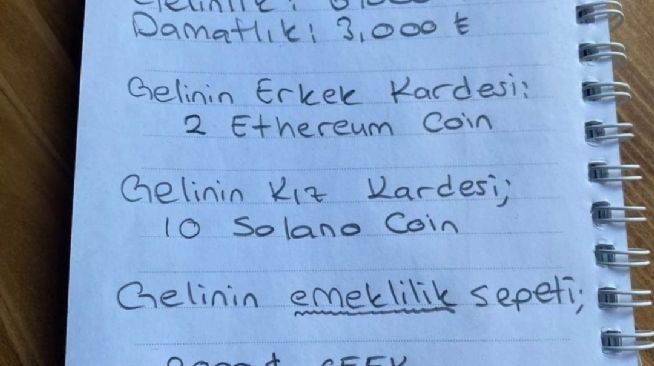 Damatlık: 3,000 ₺
Gelinin Erkek Kardeşi:
2 Ethereum Coin
Gelinin Kız Kardeşi;
10 Solano Coin
Gelinin emeklilik sepeti;